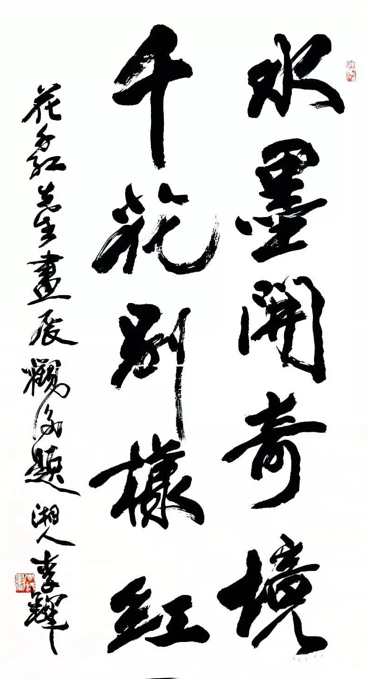 水墨開奇境
千花别樣紅
花千紅先生畫展 觀後題 湘人李鐸